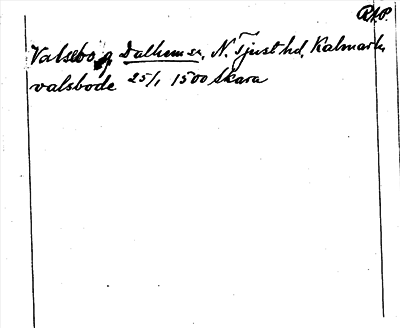 RAP.
Valsebo g Dalhem sn, N. Tjust hd, Kalmar l.
valsbode 25/1 1500 Skara